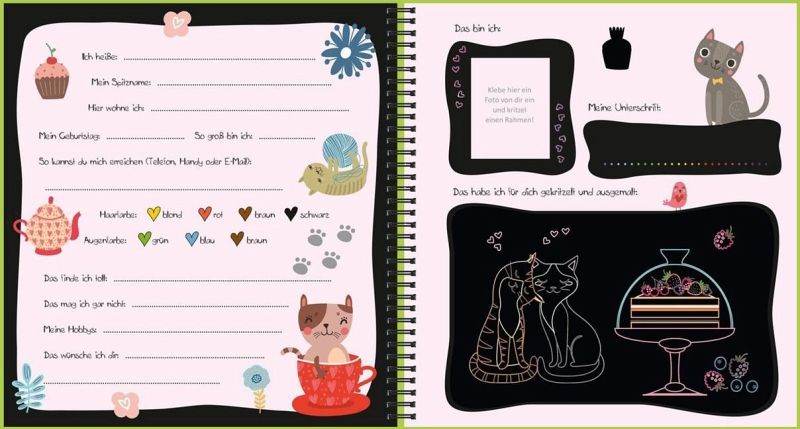 Ich heiße:
Mein Spitzname:
Hier wohne ich:
Mein Geburtstag: So groß bin ich:
So kannst du mich erreichen (Telefon, Handy oder E-Mail):
Haarfarbe: blond rot braun schwarz
Augenfarbe: grün blau braun
Das finde ich toll:
Das mag ich gar nicht:
Meine Hobbys:
Das wünsche ich dir:
Das bin ich:
Klebe hier ein
Foto von dir ein
und kritzel
einen Rahmen!
Meine Unterschrift:
Das habe ich für dich gekritzelt und ausgemalt: